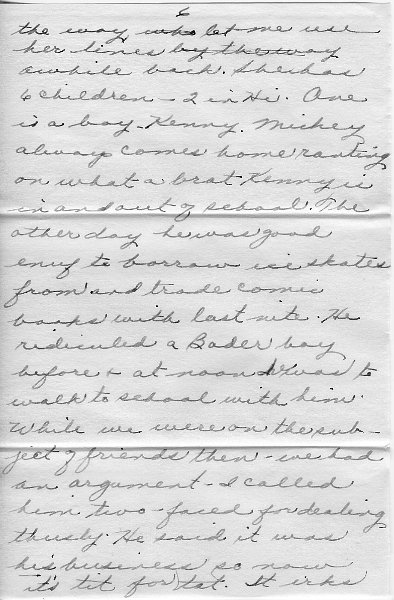 6
the way who let me use
her lines by the way
awhile back. She has
6 children - 2 in Hi. One
is a boy - Kenny. Mickey
always comes home ranting
on what a brat Kenny is
in and out of school. The
other day he was good
enuf to borrow ice skates
from and trade comic
books with last nite. He
ridiculed a Bader boy
before & at noon was to
walk to school with him.
While we were on the sub-
ject of friends then - we had
an argument - I called
him two-faced for dealing
thusly. He said it was
his business so now
it's tit for tat. It irks